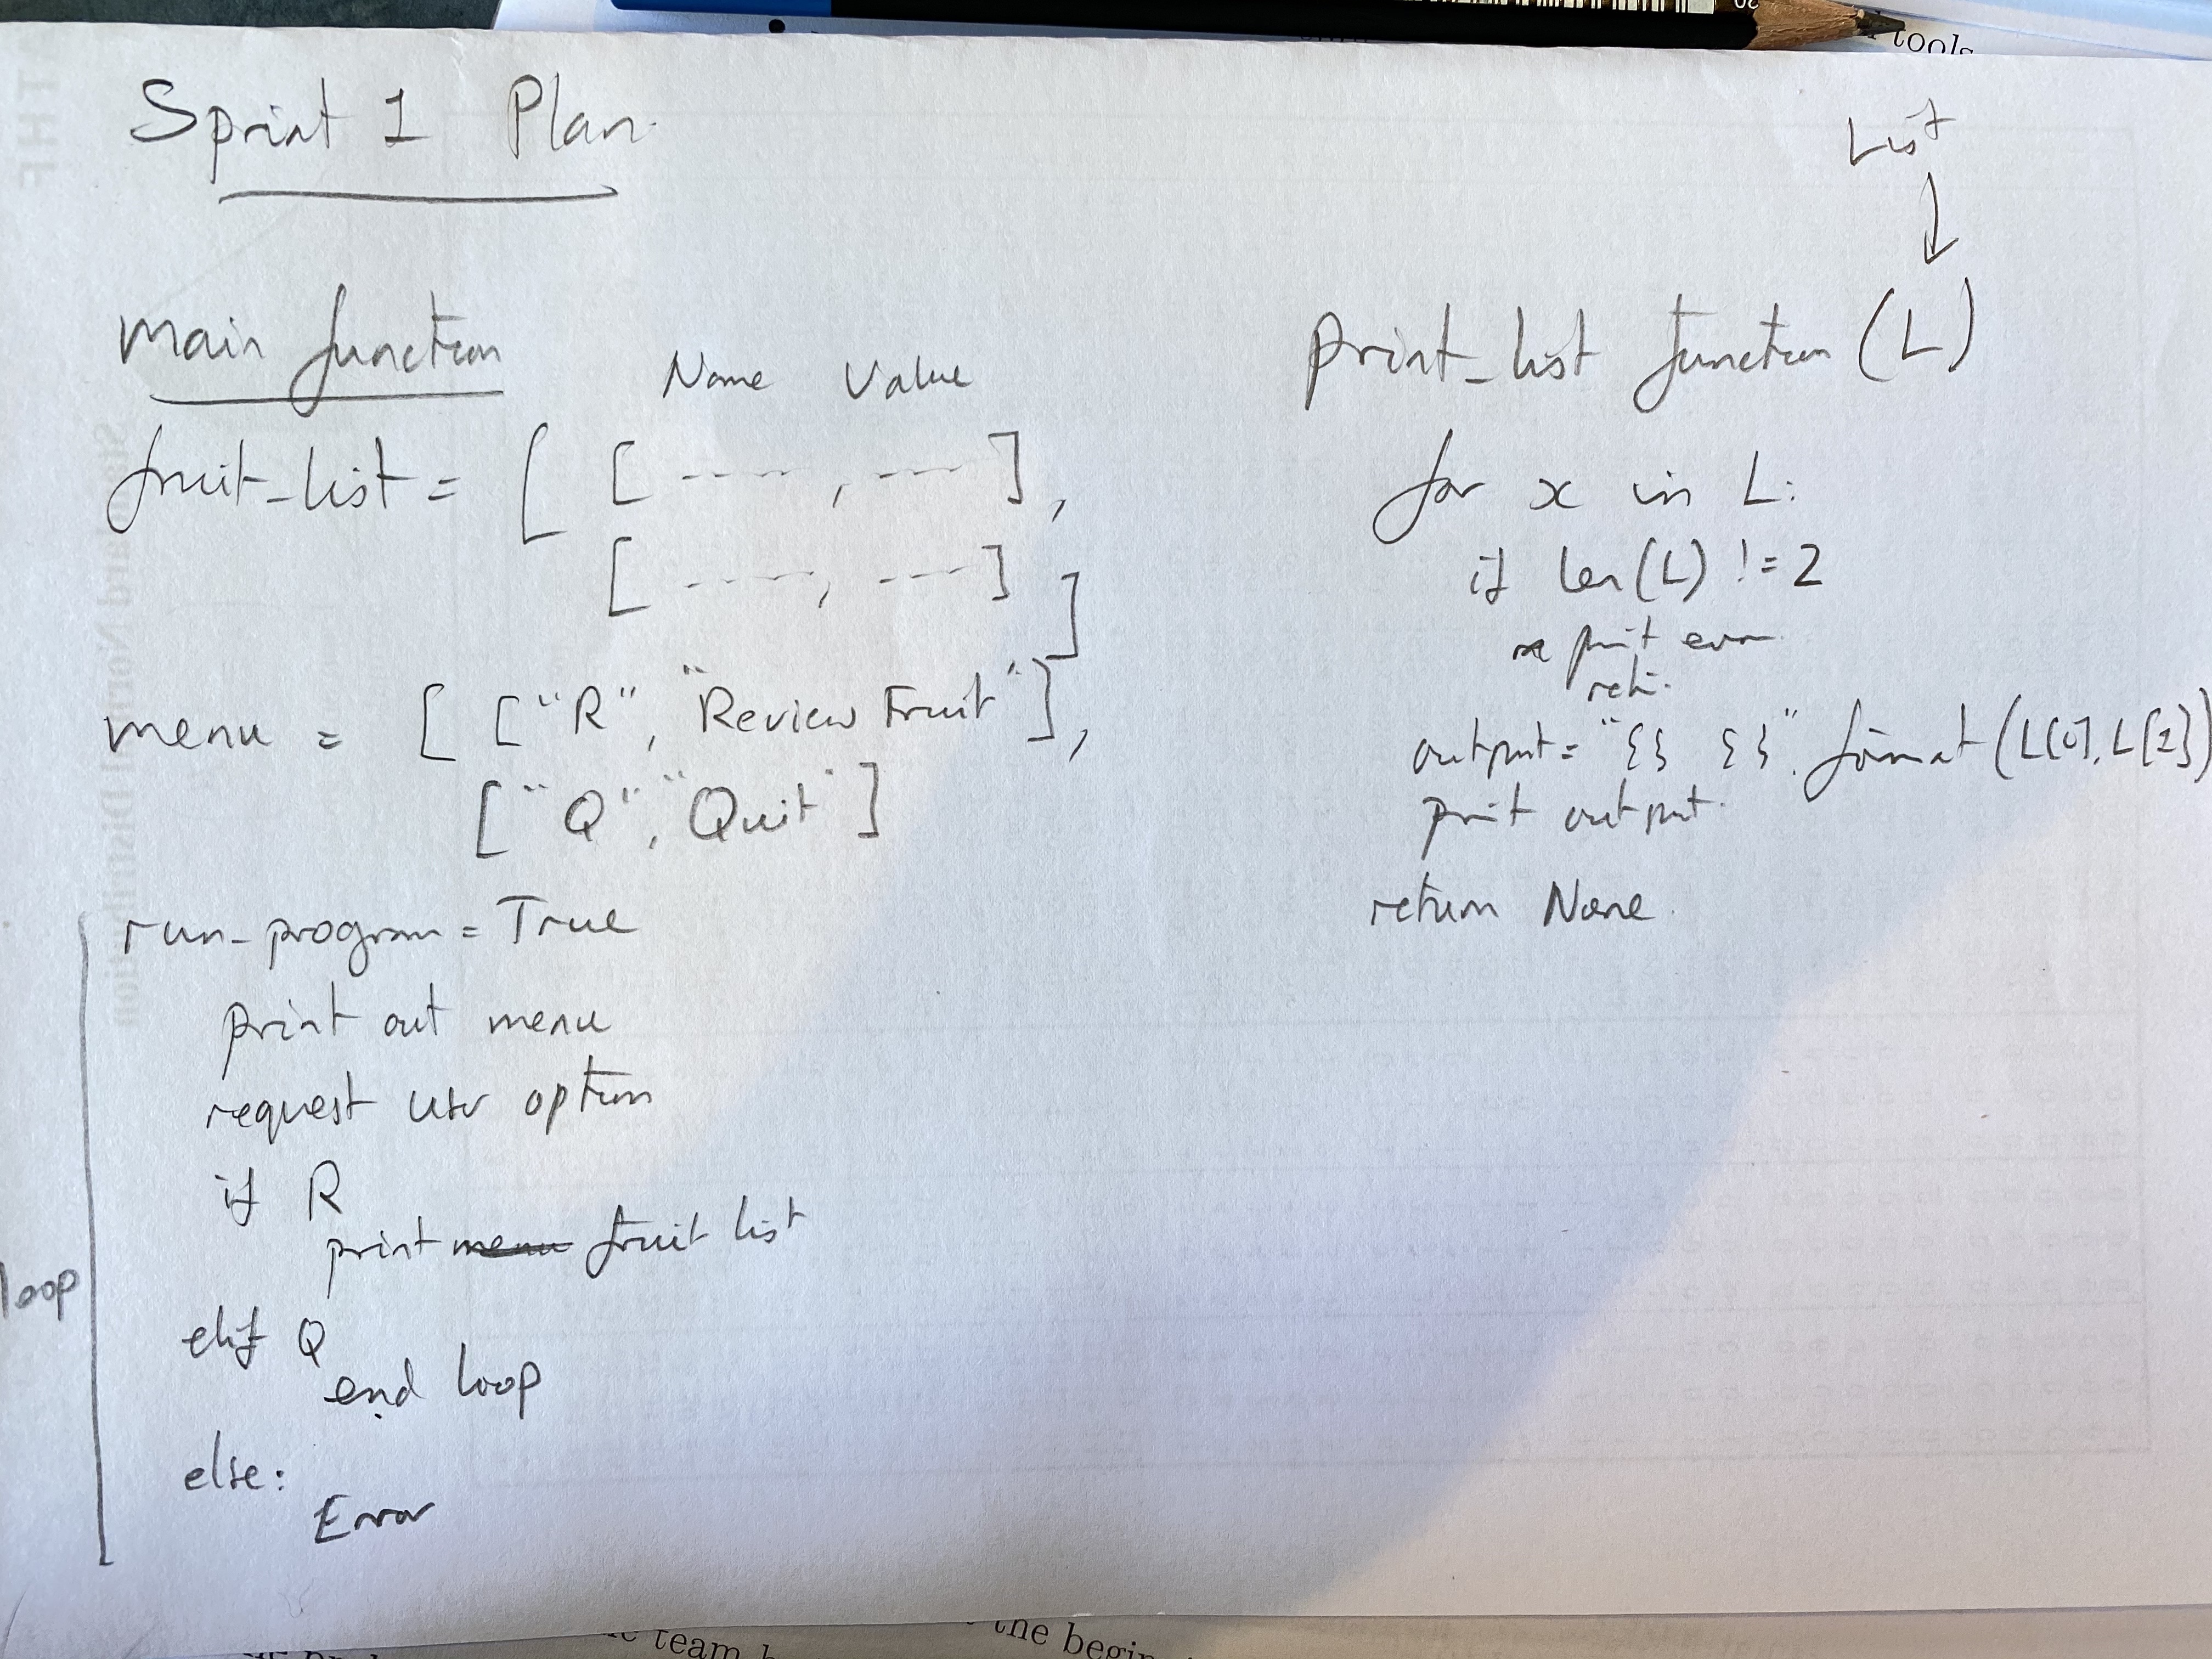 tools
Sprint 1 Plan
main function
Name Value
fruit_list = [ [ ----- , --- ],
[ ----- , --- ]
]
menu = [ ["R", "Review Fruit"],
["Q", "Quit"]
run_program = True
print out menu
request user option
if R
print menu fruit list
elif Q
end loop
else:
Error
loop
List
↓
print_list function (L)
for x in L:
if len(L) != 2
print error
output = "{} {}".format(L[0], L[1])
print output
return None
team
the begin